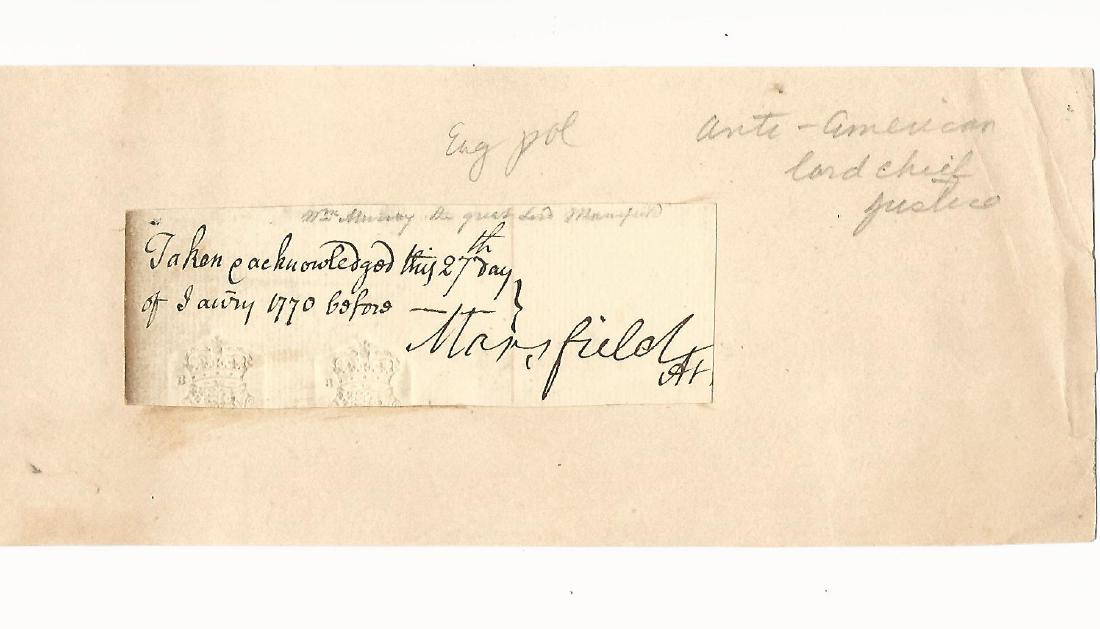 Eng pol
anti-American
lord chief
justice
Wm Murray the great Lord Mansfield
Taken & acknowledged this 27th day
of Janry 1770 before
Mansfield